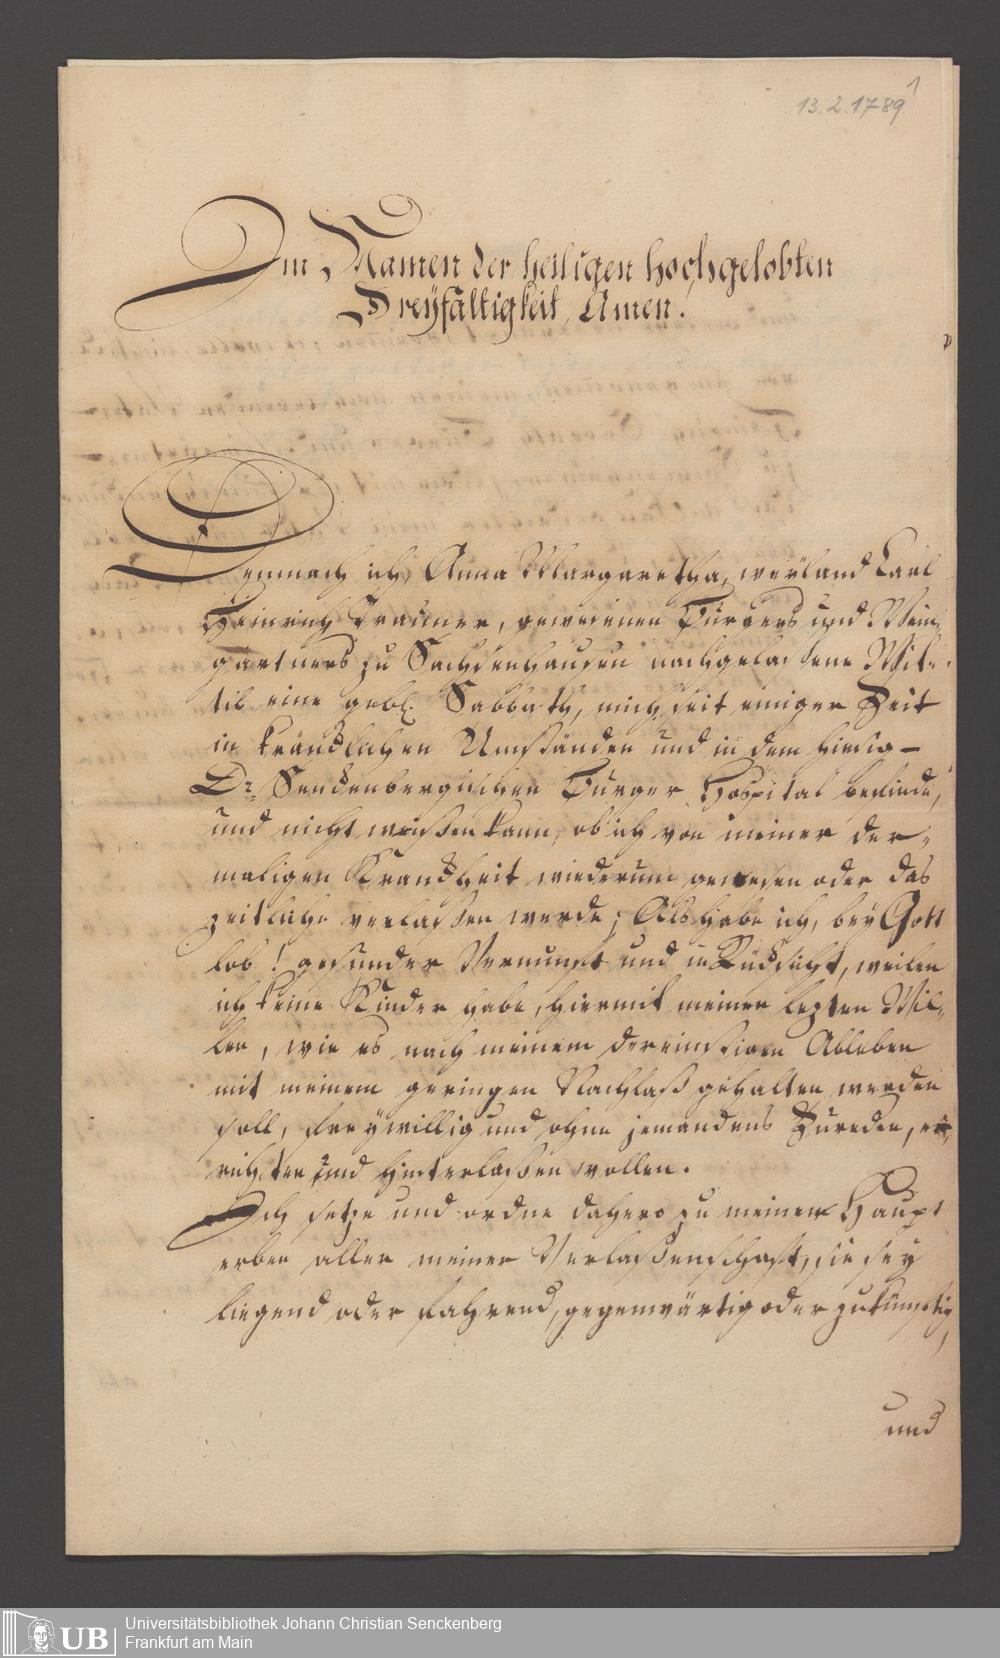 1
13.2.1789
Im Namen der heiligen hochgelobten
Dreyfaltigkeit, Amen!
Demnach ich, Anna Margaretha, weyland Carl
Heinrich gewesenen Burgers und Wein-
gärtners zu Sachsenhausen nachgelassene Wit-
tib eine gebl. Sabbath, mich seit einiger Zeit
in kräncklichen Umständen und in dem hiesig-
Dr. Senckenbergischen Burger Hospital befinde,
und nicht wissen kann, ob ich von meiner der-
maligen Kranckheit wiederum genesen oder das
zeitliche verlassen werde; Als habe ich, bey Gott
lob! gesunder Vernunft und in Rücksicht, weilen
ich keine Kinder habe, hiermit meinen lezten Wil-
len, wie es nach meinem dereinstigen Ableben
mit meinem geringen Nachlaß gehalten werden
soll, freywillig und ohne jemandens Zureden, er-
richten und hinterlassen wollen.
Ich setze und ordne dahero zu meinem Haupt
erben aller meiner Verlassenschaft, sie sey
liegend oder fahrend, gegenwärtig oder zukünftig,
und
UB
Universitätsbibliothek Johann Christian Senckenberg
Frankfurt am Main